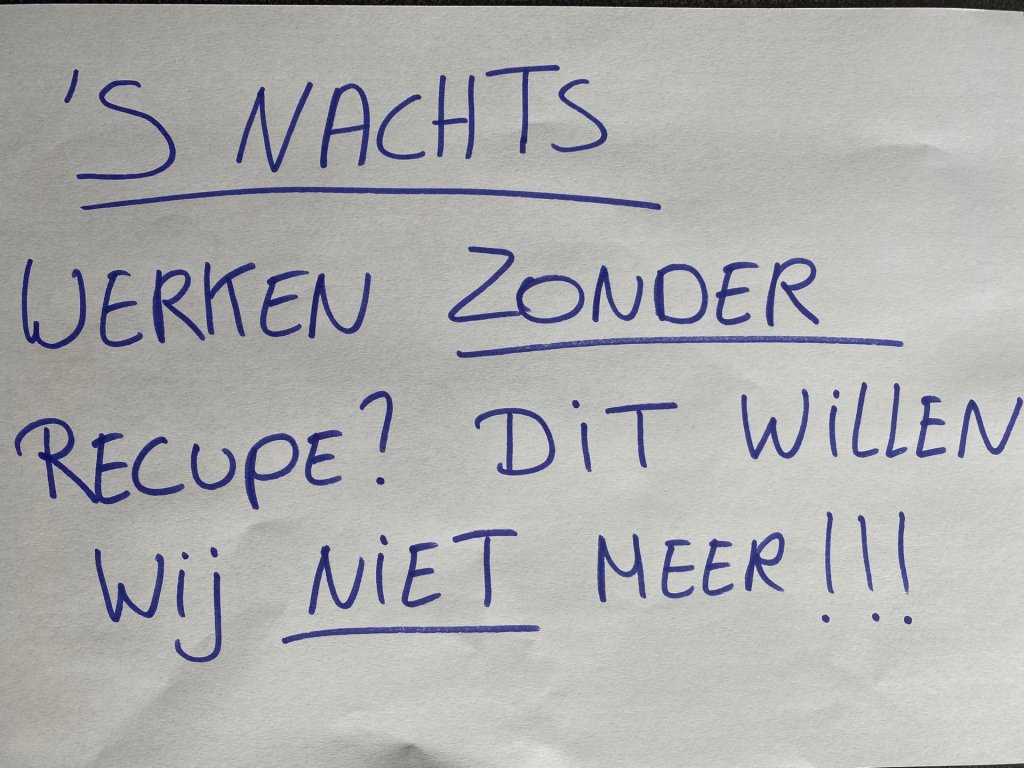 'S NACHTS
WERKEN ZONDER
RECUPE? DiT WiLLEN
Wij NiET MEER!!!